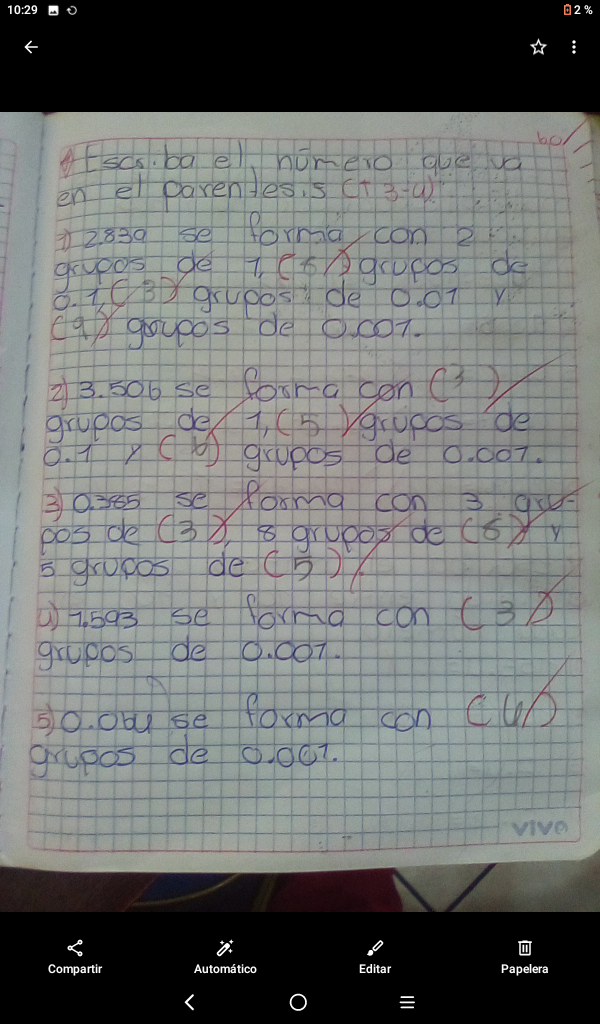 10:29
2 %
60/
Escriba el número que va
en el parentesis (+3-4)
1) 2.839 se forma con 2
grupos de 1, (8) grupos de
0.1, (3) grupos de 0.01 y
(9) grupos de 0.001.
2) 3.506 se forma con (3)
grupos de 1, (5) grupos de
0.1 y (6) grupos de 0.001.
3) 0.385 se forma con 3 gru-
pos de (3), 8 grupos de (8) y
5 grupos de (5).
4) 1.593 se forma con (3)
grupos de 0.001.
5) 0.064 se forma con (4)
grupos de 0.001.
vivo
Compartir
Automático
Editar
Papelera